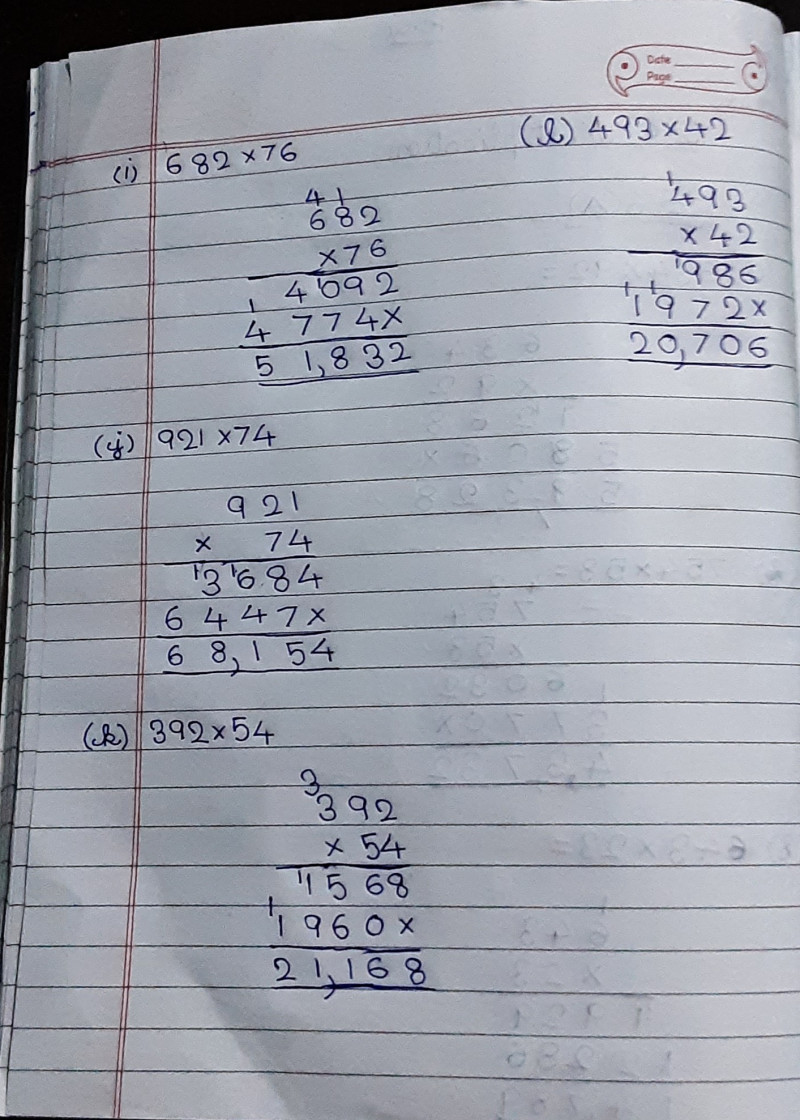 Date
Page
(i) 682 × 76
4 1
682
× 76
4 1092
1
4 774×
5 1,832
(l) 493 × 42
1
493
× 42
1986
1 1
1972×
20,706
(j) 921 × 74
921
× 74
1 3 1 6 8 4
6 4 4 7 ×
6 8,1 54
(k) 392 × 54
3
392
× 54
1 1568
1
1960×
21,168